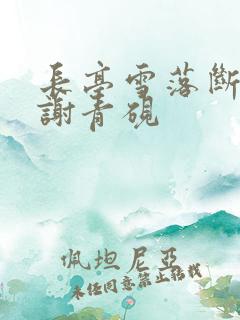 長亭雪落斷
謝青硯
佩坦尼亞
未經同意禁止轉載